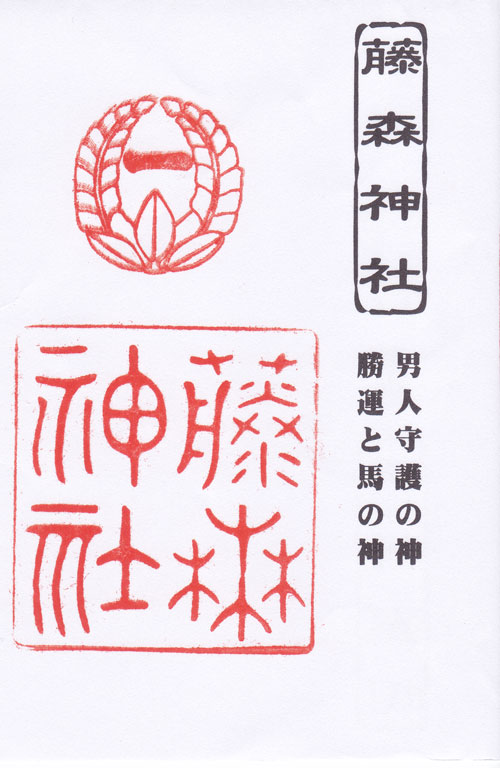 藤森神社
男人守護の神
勝運と馬の神
一
藤森
神社